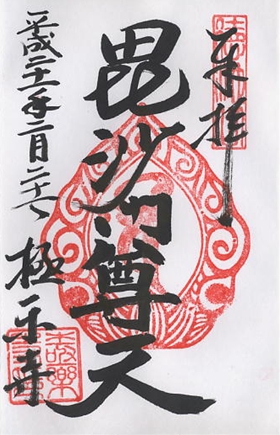 奉拝
毘沙門尊天
平成二十一年一月二十六
極楽寺